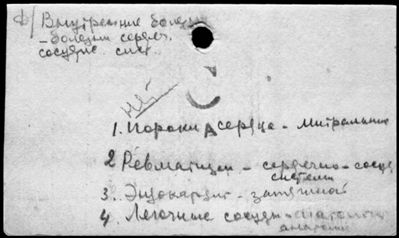 Ф/ Внутренние болезни
- болезни сердеч.
сосудис. сист.
нет
1. Пороки сердца - митральные
2 Ревматизм - сердечно-сосуд
системы
3. Эндокардит - затяжной
4. Легочные сосуды -
анатомия